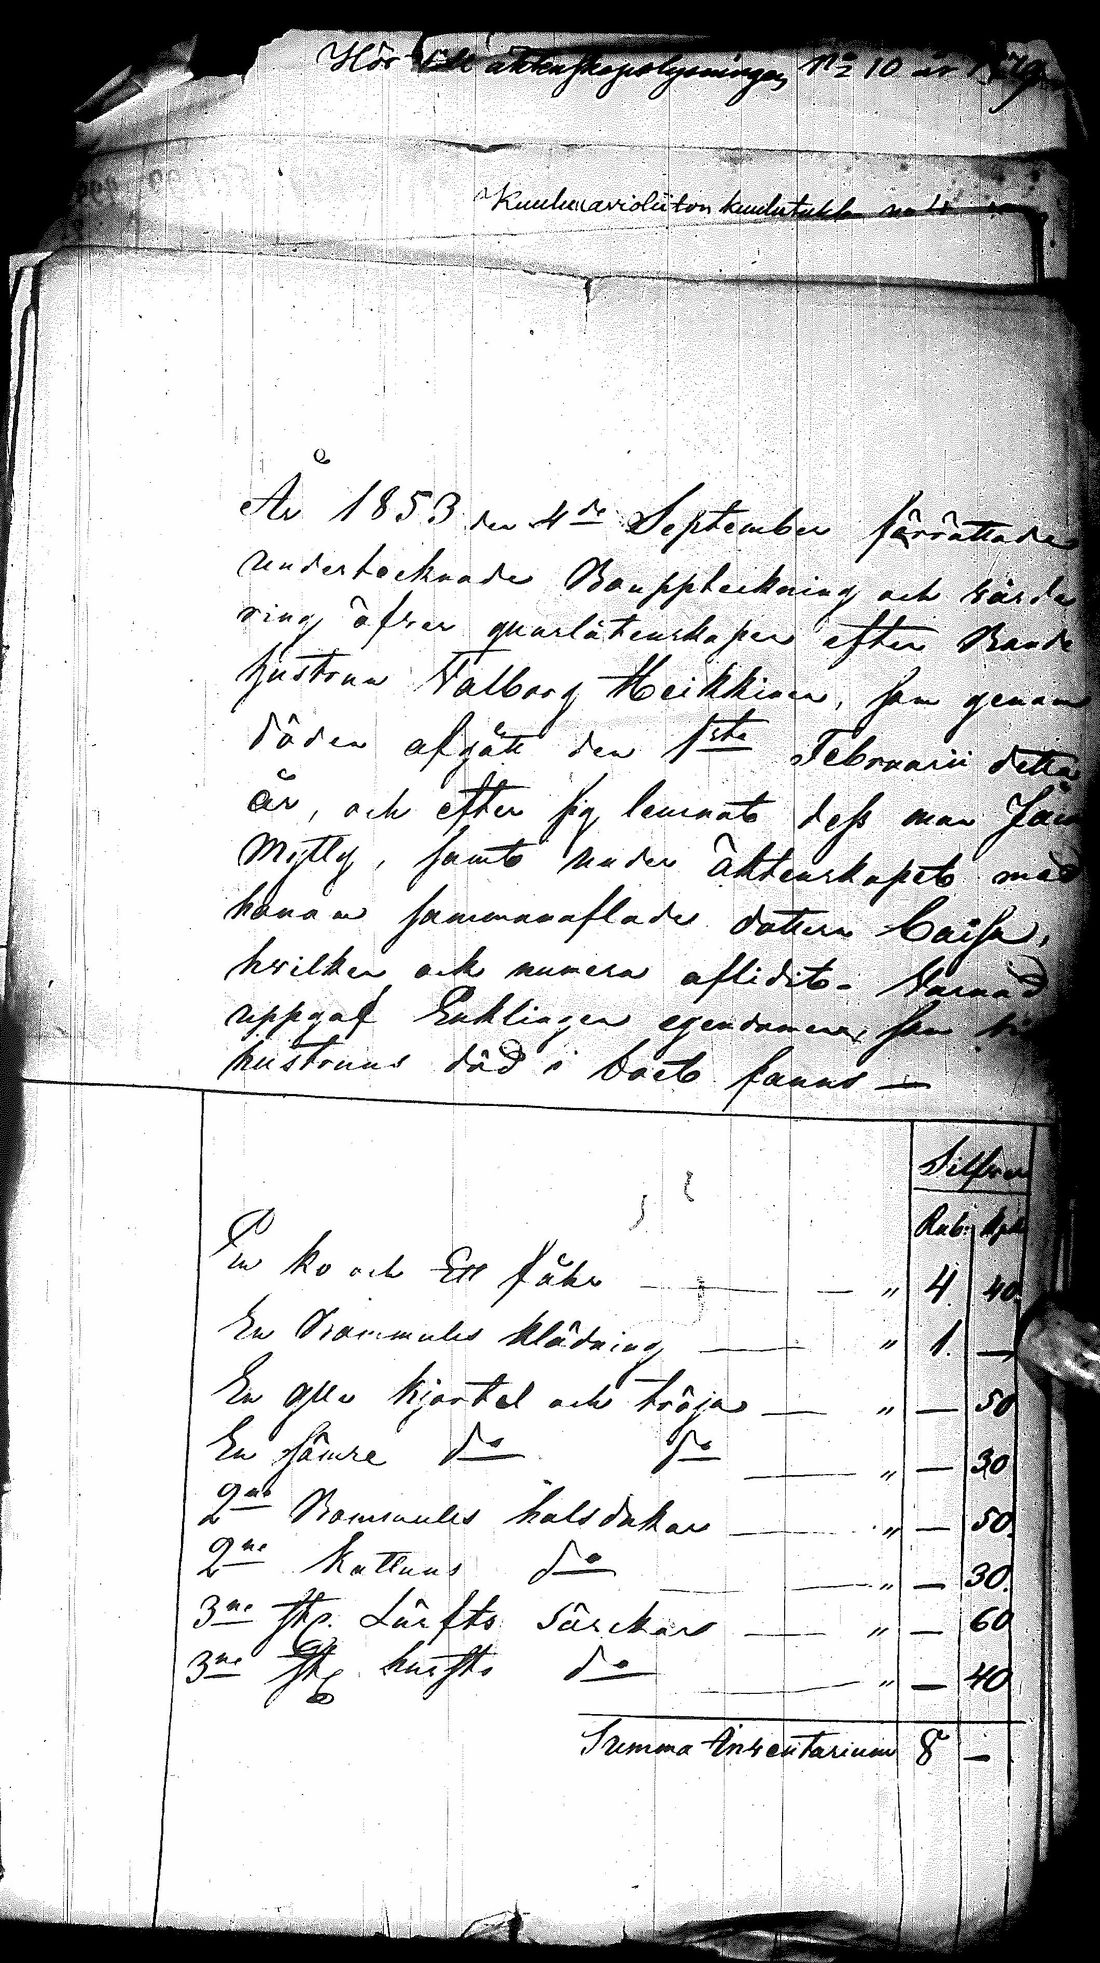 Hör till äktenskapslysningen No 10 år 1879
Kuuluu avioliiton kuulutukseen
År 1853 den 4de September förrättade
undertecknade Bouppteckning och värde
ring öfver qvarlåtenskapen efter Bonde
hustrun Valborg Heikkinen, som genom
döden afgått den 1sta Februarii detta
år, och efter sig lemnat dess man
Mylly, samt under äktenskapet med
honom sammanaflade dottern Caisa,
hvilken ock numera aflidit. Varvid
uppgaf Enklingen egendomen, som vid
hustruns död i boet fanns —
Silfver
Rub. Kop.
En ko och Ett fåhr — — " 4. 40.
En Bommulls klädning — — " 1. —
En gll kjortel och tröja — " — 50
En sämre do do — " — 30
2ne Bommulls halsdukar — " — 50.
2ne Kattuns do — — " — 30.
3ne stk. Lärfts särckar — — " — 60
3ne stk hurfts do — — " — 40
Summa Inventarium 8 —